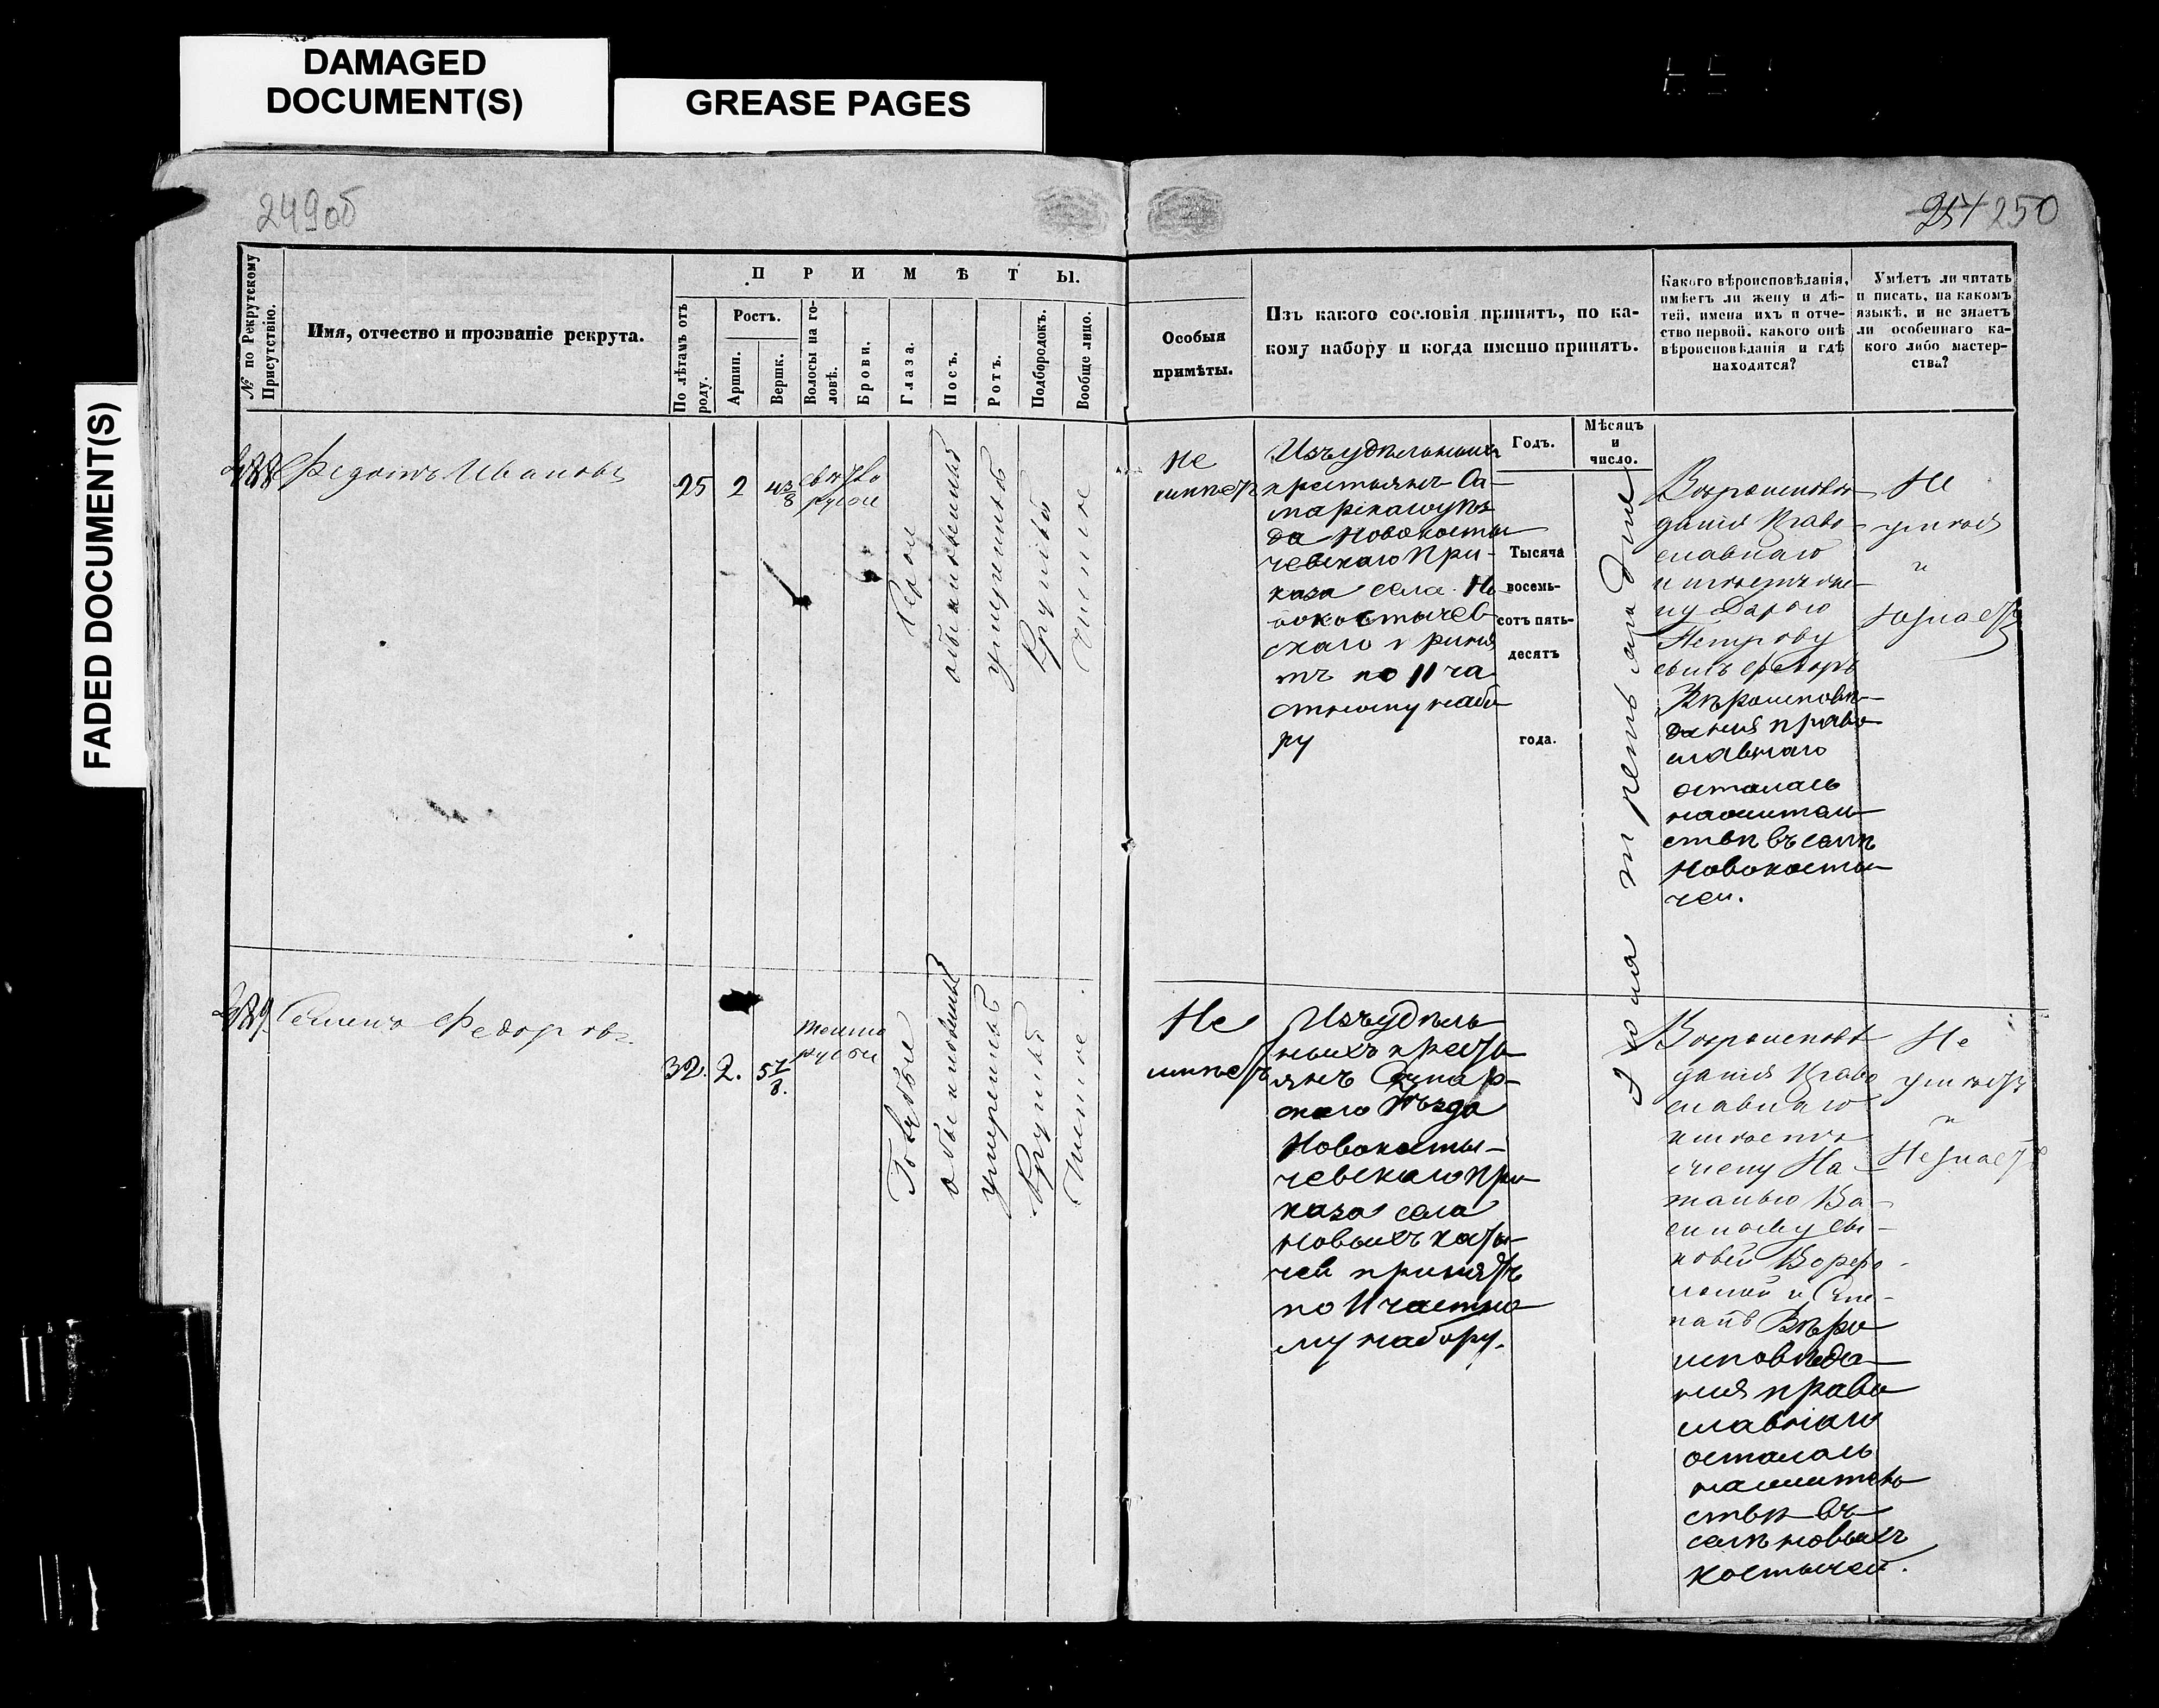 DAMAGED
DOCUMENT(S)
GREASE PAGES
FADED DOCUMENT(S)
249об
251 250
№ по Рекрутскому
Присутствію.
Имя, отчество и прозваніе рекрута.
ПРИМѢТЫ.
По лѣтамъ отъ
роду.
Ростъ.
Аршин.
Вершк.
Волосы на го-
ловѣ.
Брови.
Глаза.
Носъ.
Ротъ.
Подбородокъ.
Вообще лицо.
Особыя
примѣты.
Изъ какого сословія принятъ, по ка-
кому набору и когда именно принятъ.
Какого вѣроисповѣданія,
имѣетъ ли жену и дѣ-
тей, имена ихъ и отче-
ство первой, какого онѣ
вѣроисповѣданія и гдѣ
находятся?
Умѣетъ ли читать
и писать, на какомъ
языкѣ, и не знаетъ
ли особеннаго ка-
кого либо мастер-
ства?
Годъ.
Мѣсяцъ
и
число.
Тысяча
восемь-
сотъ пять-
десятъ
года.
Федотъ Ивановъ
25
2
4 3/8
свѣтло
русые
обыкновенный
умѣренный
круглый
чистое
Не
имѣетъ
Изъ удѣльныхъ
крестьянъ Са-
марскаго уѣз
да Новокосты
чевскаго При-
каза села Но
вокостычев
скаго приня
тъ по 11 ча
стному набо
ру
третьяго дня
Вѣроисповѣ
данія Право
славнаго
и имѣетъ же-
ну Дарью
Петрову
сынъ Федоръ
Вѣроисповѣ-
данія право
славнаго
осталась
на жител
ствѣ въ селѣ
Новокосты
чеи.
Не
умѣетъ
и
незнаетъ
389
Семенъ Федоровъ
32.
2.
5 7/8.
темно
русые
Голубые
обыкновенный
умѣренный
круглый
чистое
Не
имѣетъ
Изъ удѣль
ныхъ кресть
янъ Самар-
скаго Уѣзда
Новокосты-
чевскаго При
каза села
новыхъ косты-
чей принятъ
по 11 частно
му набору.
Іюня
Вѣроисповѣ
данія Право
славнаго
имѣетъ
жену На-
талью Ва-
сильеву сы-
новей
и Сте-
пана Вѣро
исповѣда
нія право
славнаго
осталась
на жител
ствѣ въ
селѣ новыхъ
костычей.
Не
умѣетъ
и
Незнаетъ